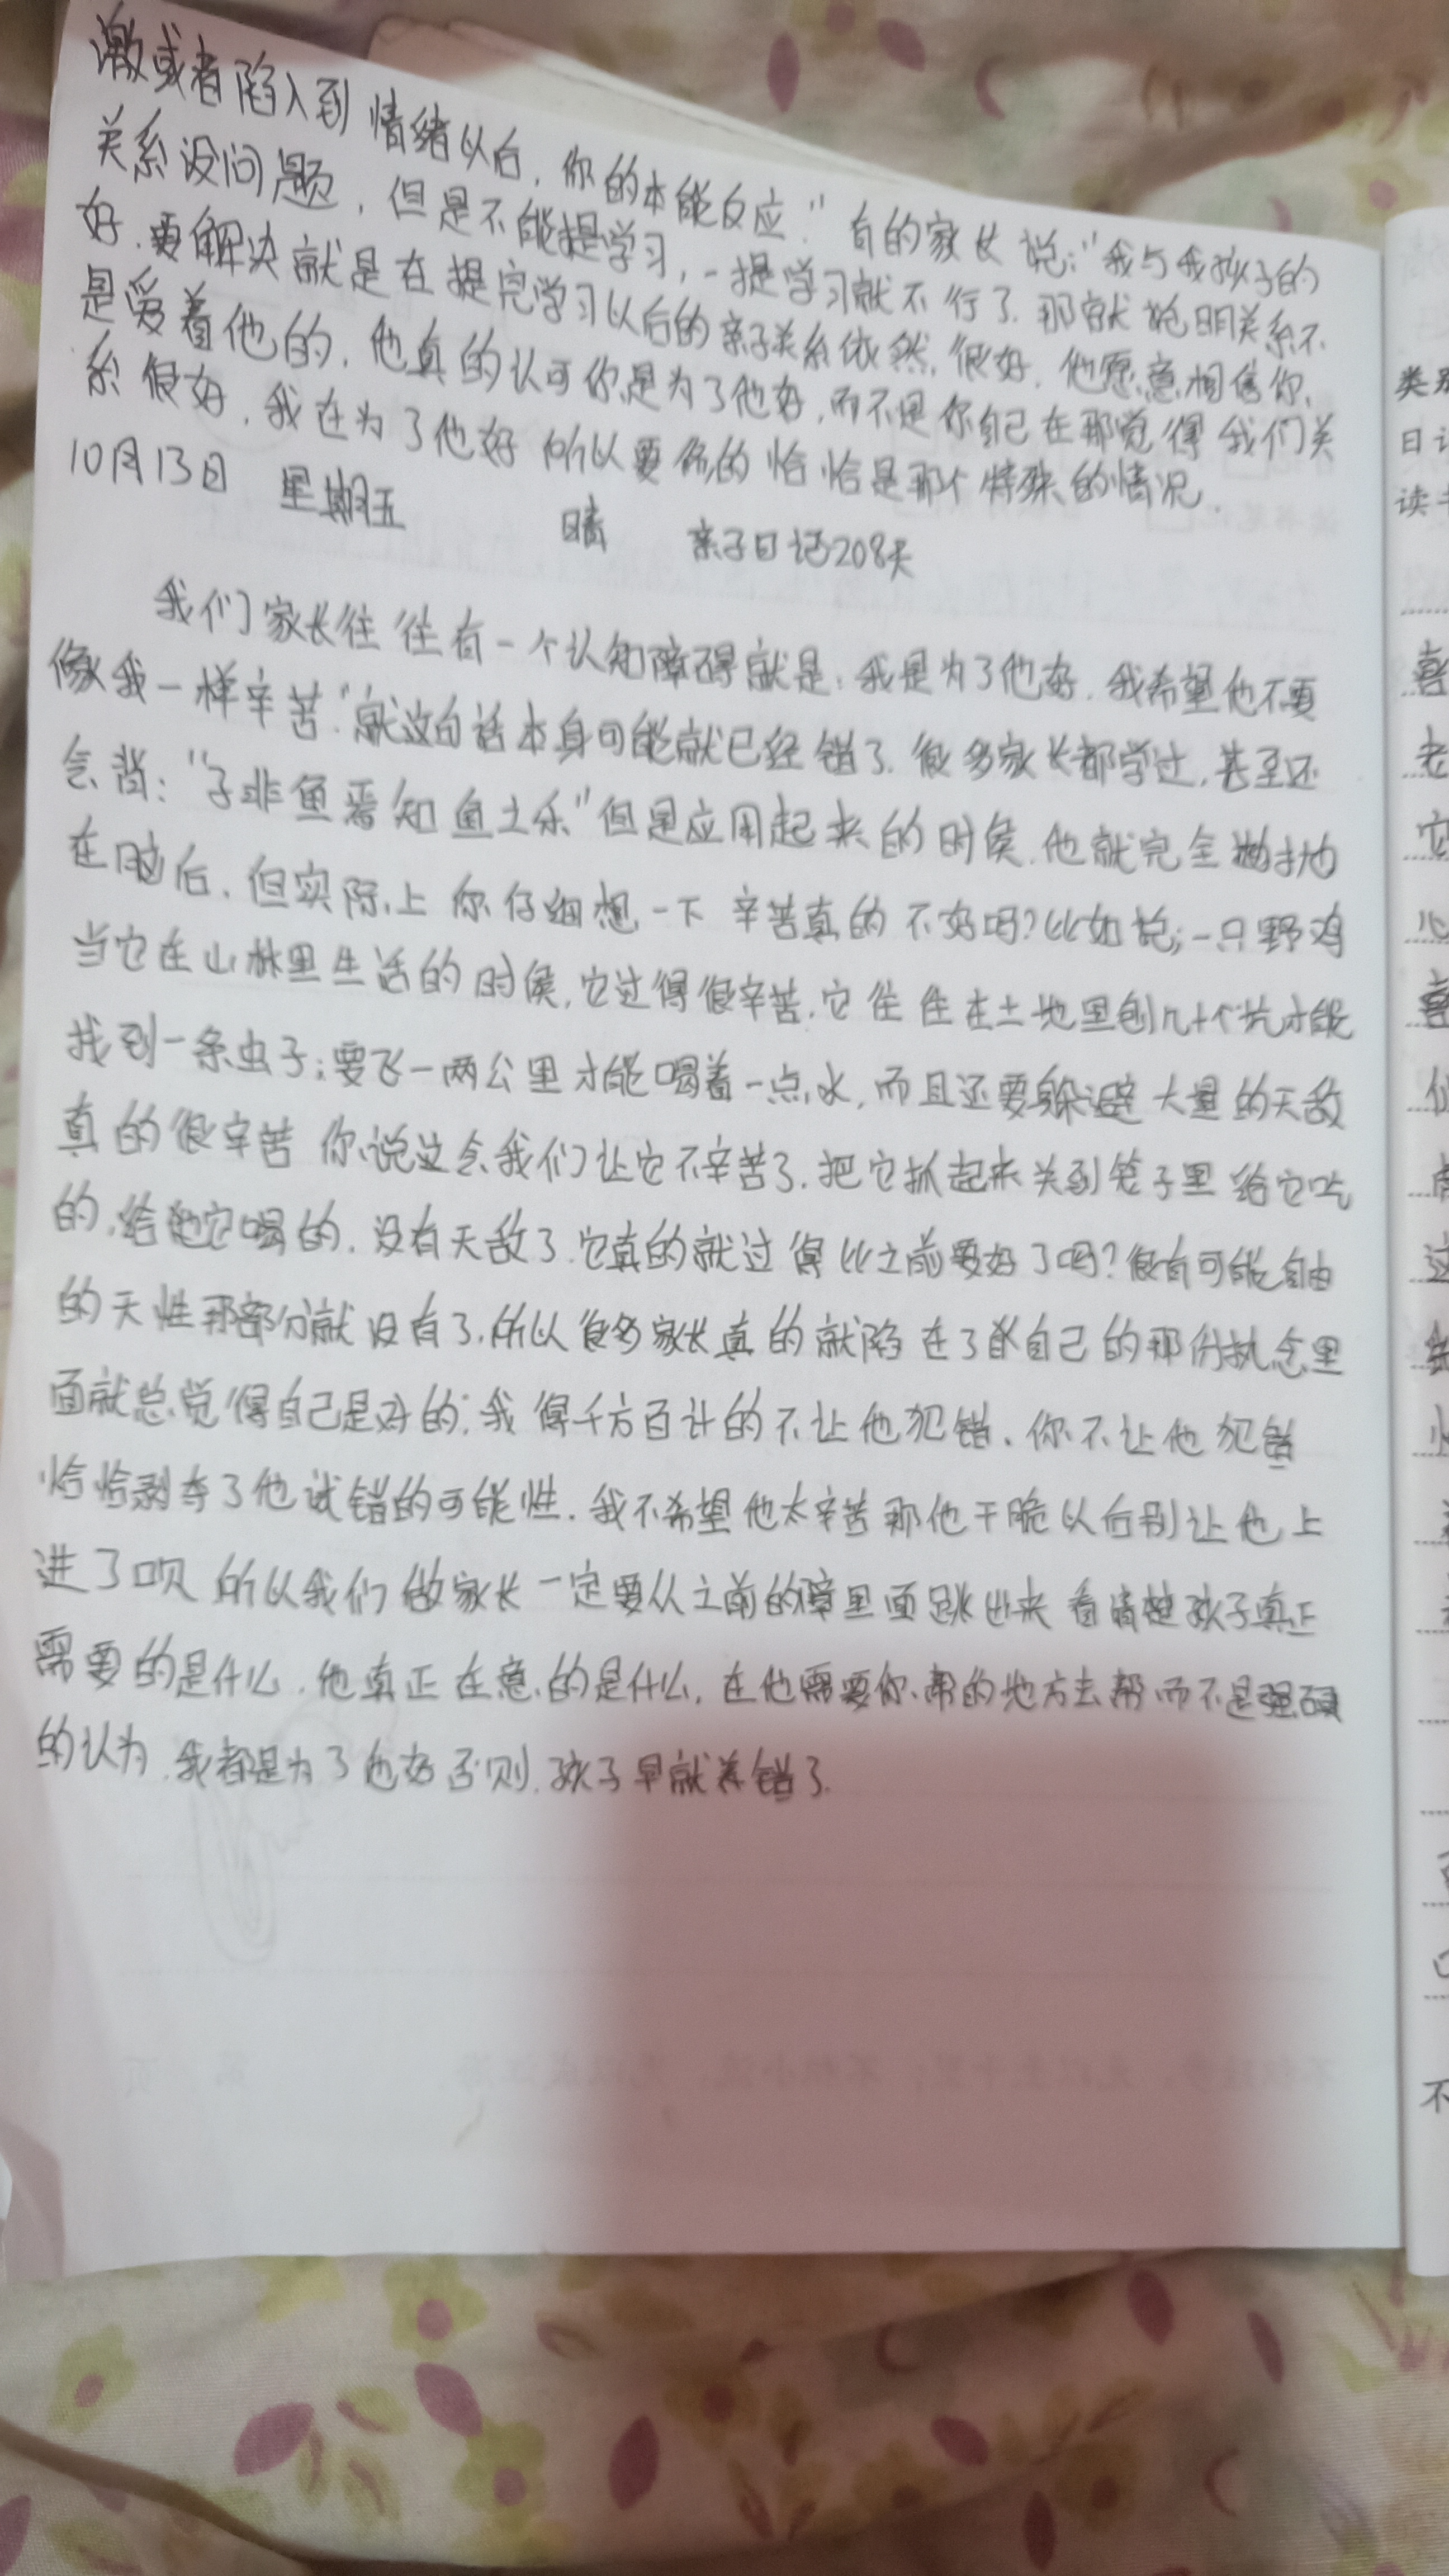 激或者陷入到情绪以后，你的本能反应."有的家长说："我与我孩子的
关系没问题，但是不能提学习，一提学习就不行了.那就说明关系不
好.要解决就是在提完学习以后的亲子关系依然很好.他愿意相信你、
是爱着他的，他真的认可你是为了他好，而不是你自己在那觉得我们关
系很好，我在为了他好所以要你的恰恰是那个特殊的情况.
10月13日 星期五 晴 亲子日记208天
我们家长往往有一个认知障碍就是，我是为了他好.我希望他不要
像我一样辛苦"就这句话本身可能就已经错了.很多家长都学过,甚至还
会背："子非鱼焉知鱼之乐"但是应用起来的时侯.他就完全抛
在脑后.但实际上你仔细想一下辛苦真的不好吗?比如说;一只野鸡
当它在山林里生活的时侯,它过得很辛苦.它往往在土地里刨几十个坑才能
找到一条虫子;要飞一两公里才能喝着一点水,而且还要躲避大量的天敌
真的很辛苦 你说这会我们让它不辛苦了.把它抓起来关到笼子里给它吃
的.给它喝的.没有天敌了.它真的就过得比之前要好了吗?很有可能自由
的天性那部分就没有了.所以很多家长真的就陷在了自己的那份执念里
面就总觉得自己是对的;我得千方百计的不让他犯错.你不让他犯错
恰恰剥夺了他试错的可能性.我不希望他太辛苦那他干脆以后别让他上
进了呗 所以我们做家长一定要从之前的障里面跳出来看清楚孩子真正
需要的是什么.他真正在意的是什么,在他需要你帮的地方去帮而不是强硬
的认为.我都是为了他好否则.孩子早就养错了.
类
日
读
喜
老
它
心
喜
不